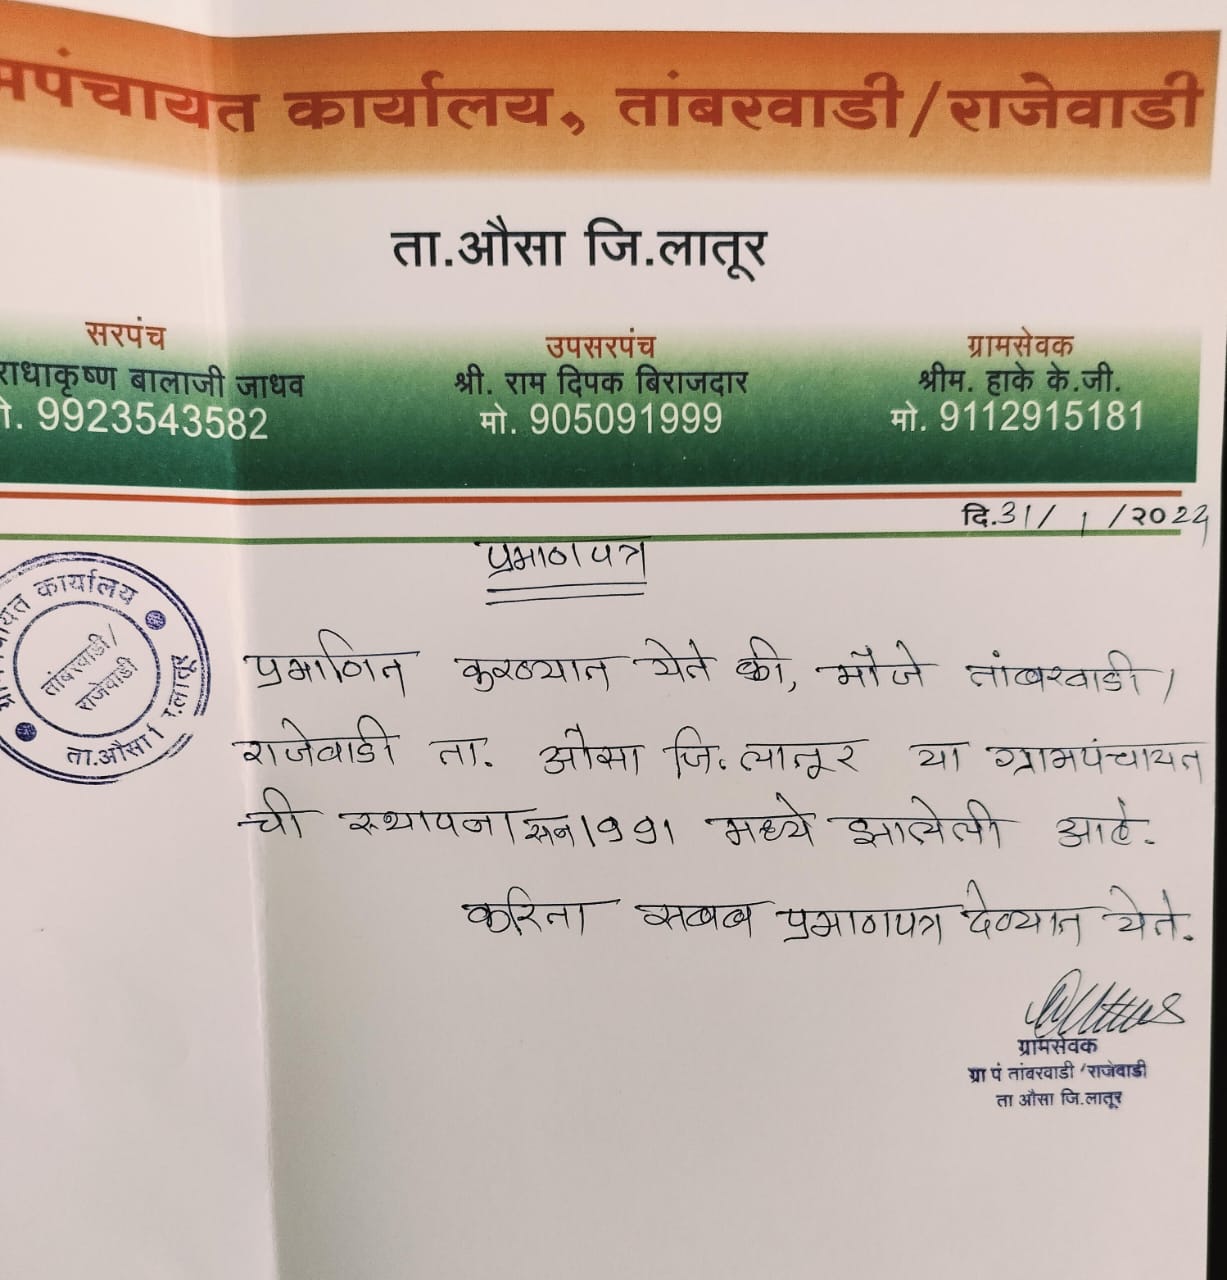 मपंचायत कार्यालय, तांबरवाडी/राजेवाडी
ता.औसा जि.लातूर
सरपंच
राधाकृष्ण बालाजी जाधव
मो. 9923543582
उपसरपंच
श्री. राम दिपक बिराजदार
मो. 905091999
ग्रामसेवक
श्रीम. हाके के.जी.
मो. 9112915181
दि.31/1/२०२२
प्रमाणपत्र
कार्यालय
तांबरवाडी/
राजेवाडी
ता.औसा
प्रमाणित करण्यात येते की, मौजे तांबरवाडी/
राजेवाडी ता. औसा जि.लातूर या ग्रामपंचायत
ची स्थापना सन 1991 मध्ये झालेली आहे.
करिता सबब प्रमाणपत्र देण्यात येते.
ग्रामसेवक
ग्रा पं तांबरवाडी/राजेवाडी
ता औसा जि.लातूर